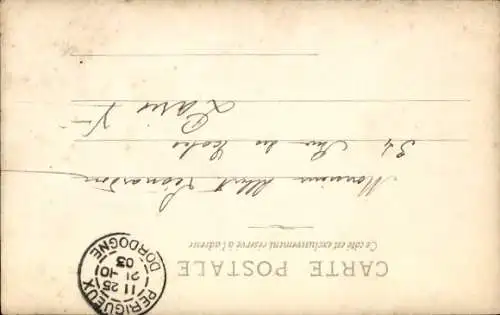 CARTE POSTALE
Ce côté est exclusivement réservé à l'adresse
Monsieur Albert
34 Rue des Ecoles
Paris V
PERIGUEUX
11 25
21 -10
03
DORDOGNE